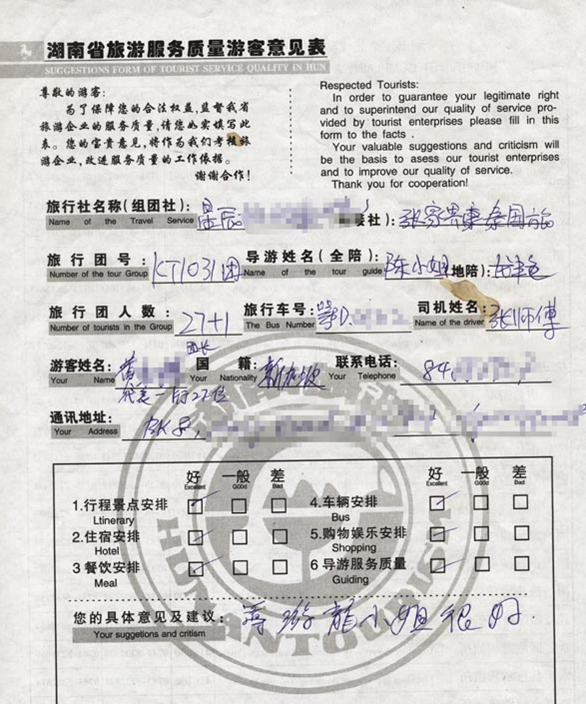 湖南省旅游服务质量游客意见表
SUGGESTIONS FORM OF TOURIST SERVICE QUALITY IN HUN
尊敬的游客:
为了保障您的合法权益,监督我省
旅游企业的服务质量,请您如实填写此
表。您的宝贵意见,将作为我们考核旅
游企业,改进服务质量的工作依据。
谢谢合作!
Respected Tourists:
In order to guarantee your legitimate right
and to superintend our quality of service pro-
vided by tourist enterprises please fill in this
form to the facts .
Your valuable suggestions and criticism will
be the basis to asess our tourist enterprises
and to improve our quality of service.
Thank you for cooperation!
旅行社名称(组团社): 星辰 接社): 张家界東泰国旅
Name of the Travel Service
旅行团号: KT1031团 导游姓名(全陪): 陈小姐 (地陪):
Number of the tour Group Name of the tour guide
旅行团人数: 27+1 旅行车号: 鄂D 司机姓名: 张师傅
Number of tourists in the Group The Bus Number Name of the driver
团长
游客姓名: 黄 国籍: 新加坡 联系电话: 84
Your Name Your Nationality Your Telephone
代表一行27位
通讯地址:
Your Address
好 一般 差 好 一般 差
Excellent Good Bad Excellent Good Bad
1.行程景点安排 4.车辆安排
Ltinerary Bus
2.住宿安排 5.购物娱乐安排
Hotel Shopping
3 餐饮安排 6 导游服务质量
Meal Guiding
您的具体意见及建议: 游龍小姐很好.
Your suggetions and critism
HUNANTOURISM